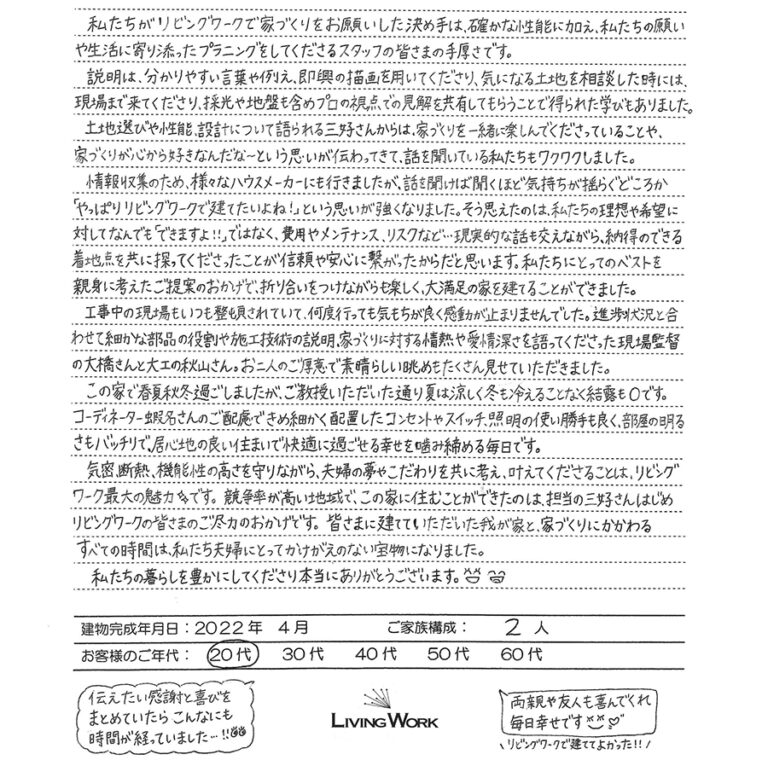 私たちがリビングワークで家づくりをお願いした決め手は、確かな性能に加え、私たちの願い
や生活に寄り添ったプランニングをしてくださるスタッフの皆さまの手厚さです。
説明は、分かりやすい言葉や例え、即興の描画を用いてくださり、気になる土地を相談した時には、
現場まで来てくださり、採光や地盤も含めプロの視点での見解を共有してもらうことで得られた学びもありました。
土地選びや性能、設計について語られる三好さんからは、家づくりを一緒に楽しんでくださっていることや、
家づくりが心から好きなんだな〜という思いが伝わってきて、話を聞いている私たちもワクワクしました。
情報収集のため、様々なハウスメーカーにも行きましたが、話を聞けば聞くほど気持ちが揺らぐどころか
「やっぱりリビングワークで建てたいよね!」という思いが強くなりました。そう思えたのは、私たちの理想や希望に
対してなんでも「できますよ!!」ではなく、費用やメンテナンス、リスクなど…現実的な話も交えながら、納得のできる
着地点を共に探ってくださったことが信頼や安心に繋がったからだと思います。私たちにとってのベストを
親身に考えたご提案のおかげで、折り合いをつけながらも楽しく、大満足の家を建てることができました。
工事中の現場もいつも整頓されていて、何度行っても気持ちが良く感動が止まりませんでした。進歩状況と合
わせて細かな部品の役割や施工技術の説明、家づくりに対する情熱や愛情深さを語ってくださった現場監督
の大橋さんと大工の秋山さん。お二人のご厚意で素晴らしい眺めもたくさん見せていただきました。
この家で春夏秋冬過ごしましたが、ご教授いただいた通り夏は涼しく冬も冷えることなく結露も0です。
コーディネーター蝦名さんのご配慮できめ細かく配置したコンセントやスイッチ、照明の使い勝手も良く、部屋の明る
さもバッチリで、居心地の良い住まいで快適に過ごせる幸せを噛み締める毎日です。
気密、断熱、機能性の高さを守りながら、夫婦の夢やこだわりを共に考え、叶えてくださることは、リビング
ワーク最大の魅力です。競争率が高い地域で、この家に住むことができたのは、担当の三好さんはじめ
リビングワークの皆さまのご尽力のおかげです。皆さまに建てていただいた我が家と、家づくりにかかわる
すべての時間は、私たち夫婦にとってかけがえのない宝物になりました。
私たちの暮らしを豊かにしてくださり本当にありがとうございます。
建物完成年月日:2022年 4月 ご家族構成: 2人
お客様のご年代: 20代 30代 40代 50代 60代
伝えたい感謝と喜びを
まとめていたらこんなにも
時間が経っていました…!!
LIVINGWORK
両親や友人も喜んでくれ
毎日幸せです
\リビングワークで建ててよかった!!/